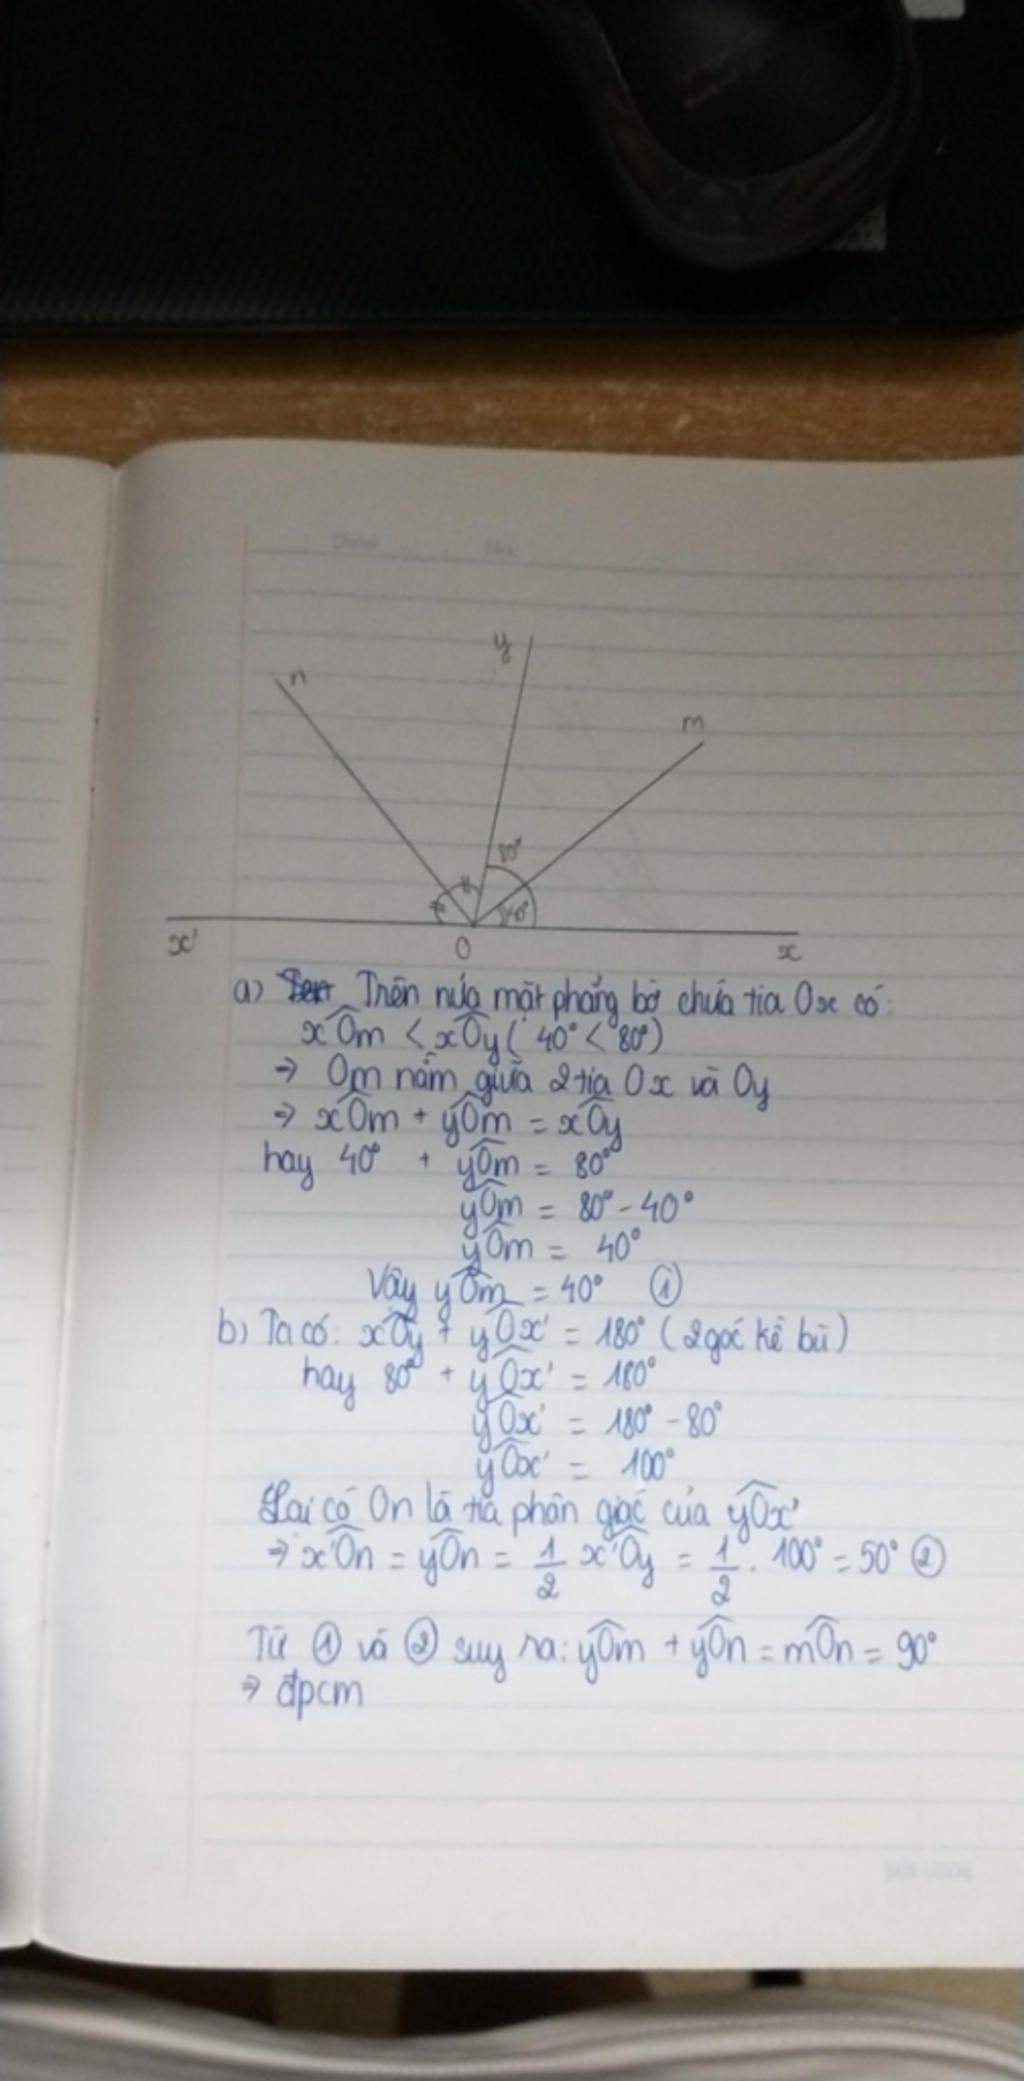 No.
y
n
m
80°
40°
x'
O
x
a) Trên nửa mặt phẳng bờ chứa tia Ox có:
xÔm < xÔy ( 40° < 80°)
⇒ Om nằm giữa 2 tia Ox và Oy
⇒ xÔm + yÔm = xÔy
hay 40° + yÔm = 80°
yÔm = 80° - 40°
yÔm = 40°
Vậy yÔm = 40° ①
b) Ta có: xÔy + yÔx' = 180° (2 góc kề bù)
hay 80° + yÔx' = 180°
yÔx' = 180° - 80°
yÔx' = 100°
Lại có On là tia phân giác của yÔx'
⇒ x'Ôn = yÔn = 1/2 x'Ôy = 1/2 . 100° = 50° ②
Từ ① và ② suy ra: yÔm + yÔn = mÔn = 90°
⇒ đpcm